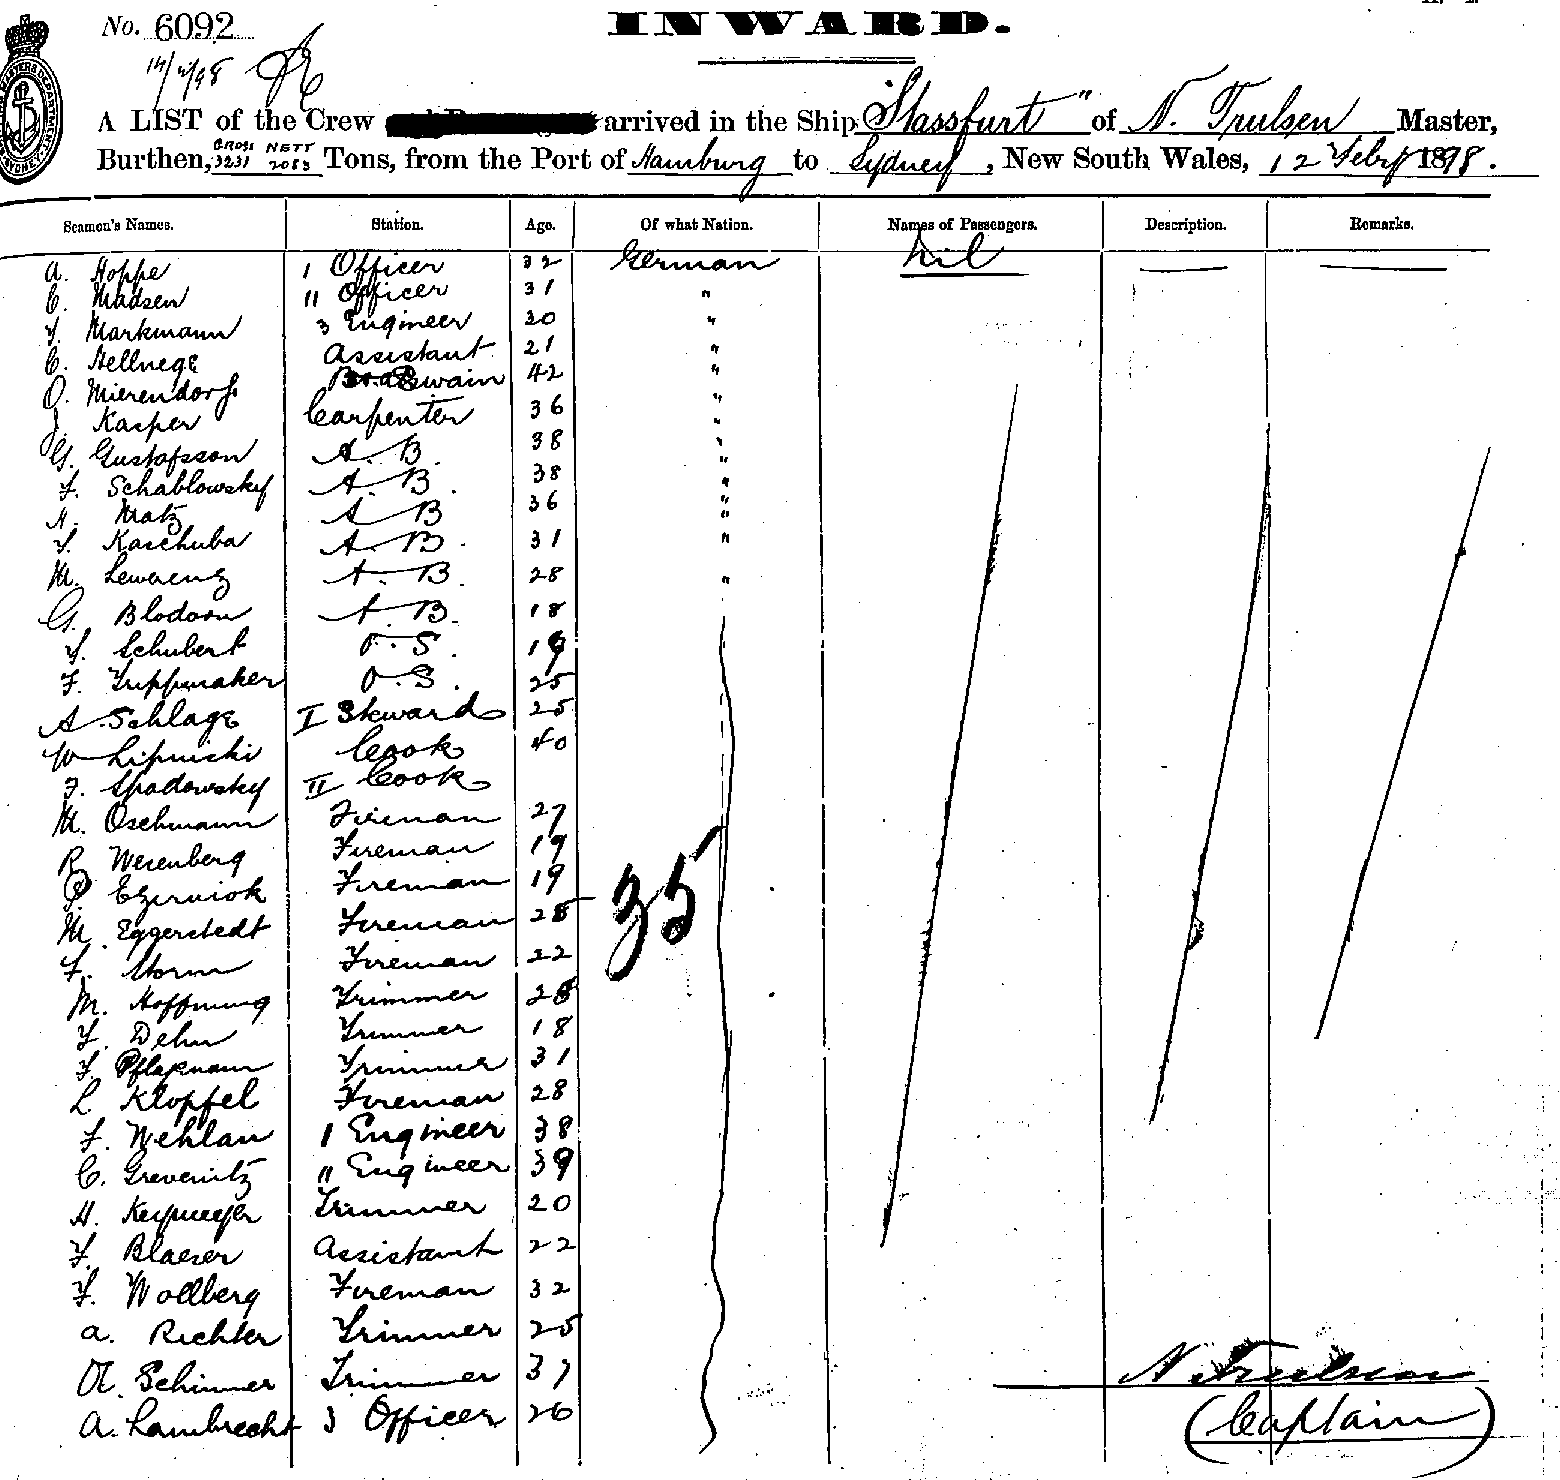 No. 6092
INWARD.
A LIST of the Crew arrived in the Ship "Stassfurt" of N. Trulsen Master,
Burthen, GROSS 3231 NETT 2083 Tons, from the Port of Hamburg to Sydney, New South Wales, 12 Feby 1898.
Seamen's Names. Station. Age. Of what Nation. Names of Passengers. Description. Remarks.
A. Hoppe 1 Officer 32 German Nil
C. Madsen 11 Officer 31 "
Markmann 3 Engineer 30 "
C. Hellnege Assistant 21 "
O. Mierendorf Boatswain 42 "
J. Kasper Carpenter 36 "
G. Gustafsson A. B. 38 "
F. Schablowsky A. B. 38 "
Matz A B 36 "
Kaschuba A. B. 31 "
M. Lewerenz A. B. 28 "
G. Blodorn A. B. 18
Schubert O. S. 19
F. Truppmaker O. S. 25
A. Schlage I Steward 25
W Lipinski Cook 40
F. Spadowsky II Cook
M. Oschmann Fireman 27
R Wesenberg Fireman 19
Fireman 19
M. Eggerstedt Fireman 25
35
F. Storm Fireman 22
M. Hoffnung Trimmer 28
Dehn Trimmer 18
Trimmer 31
L. Klopfel Fireman 28
F. Wehlan 1 Engineer 38
C. Grevenitz 11 Engineer 39
H. Trimmer 20
F. Blaeser Assistant 22
F. Wollberg Fireman 32
A. Richter Trimmer 25
Schirmer Trimmer 37
A. Lambrecht 3 Officer 26
N Trulsen
(Captain)